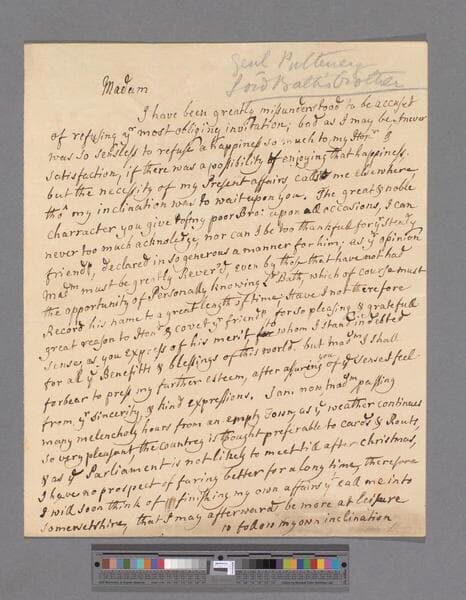 Genl Pulteney
Lord Bath's brother
Madam
I have been greatly missunderstood to be accus'd
of refusing yr most obliging invitation; bad as I may be I never
was so sensless to refuse a happiness so much to my Honr &
satisfaction, if there was a possibility of enjoying that happiness.
but the necessity of my Present affairs, calls me elsewhere,
tho' my inclination was to wait upon you. The great & noble
character you give of my poor Bro: upon all occasions, I can
never too much acknoledge, nor can I be too thankfull for yr steady
friendp, declared in so generous a manner for him; as yr opinion
Madm must be greatly Rever'd even by those that have not had
the opportunity of Personally knowing Ld Bath, which of course must
Record his name to a great length of time. Have I not therefore
great reason to Honr & covet yr friendp, for so pleasing & gratefull
sense, as you express of his merit, to whom I stand indebted
for all ye Benefits & blessings of this world. but Madm I shall
forbear to press my further esteem, after assuring you of ye sense I feel
from yr sincerity & kind expressions. I am now, Madm passing
many melencholy hours from an empty Town, as ye weather continues
so very pleasant the country is thought preferable to cards & Routs,
& as ye Parliament is not likely to meet till after christmas,
I have no prospect of faring better for a long time, therefore
I will soon think of finishing my own affairs yt call me into
somersetshire, that I may afterward be more at leisure
to follow my own inclination